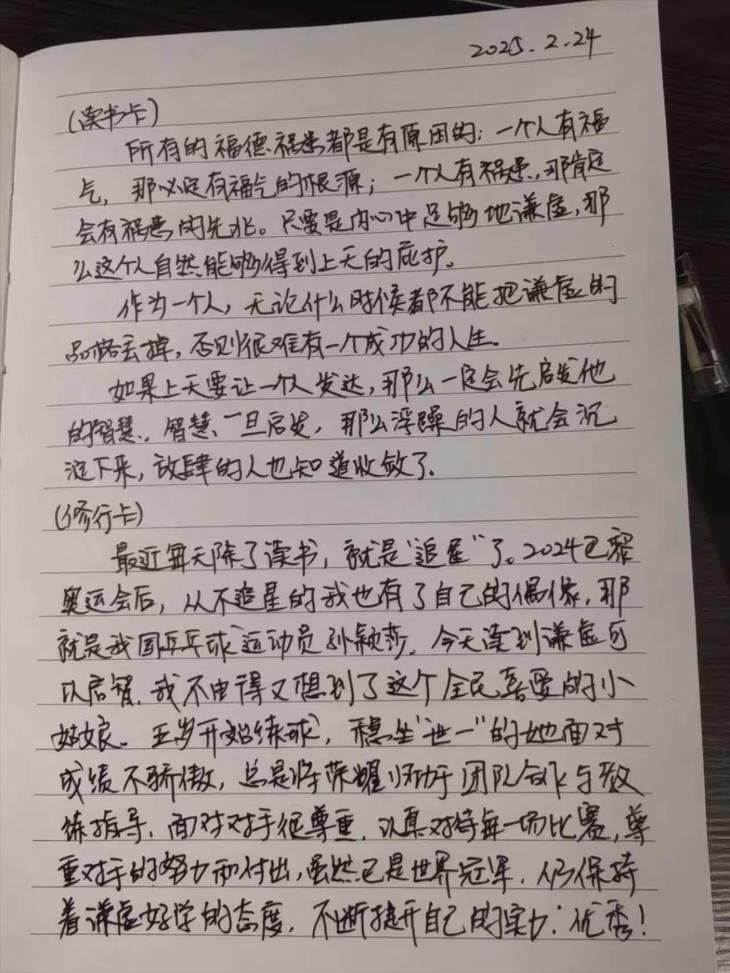 2025.2.24
(读书卡)
所有的福德祸患都是有原因的：一个人有福
气，那必定有福气的根源；一个人有祸患，那肯定
会有祸患的先兆。只要是内心中足够地谦虚，那
么这个人自然能够得到上天的庇护。
作为一个人，无论什么时候都不能把谦虚的
品格丢掉，否则很难有一个成功的人生。
如果上天要让一个人发达，那么一定会先启发他
的智慧。智慧一旦启发，那么浮躁的人就会沉
淀下来，放肆的人也知道收敛了。
(修行卡)
最近每天除了读书，就是"追星"了。2024巴黎
奥运会后，从不追星的我也有了自己的偶像，那
就是我国乒乓球运动员孙颖莎。今天读到谦虚可
以启智，我不由得又想到了这个全民喜爱的小
姑娘。五岁开始练球，稳坐"世一"的她面对
成绩不骄傲，总是将荣耀归功于团队合作与教
练指导，面对对手很尊重，认真对待每一场比赛，尊
重对手的努力和付出，虽然已是世界冠军，仍保持
着谦虚好学的态度，不断提升自己的实力：优秀！